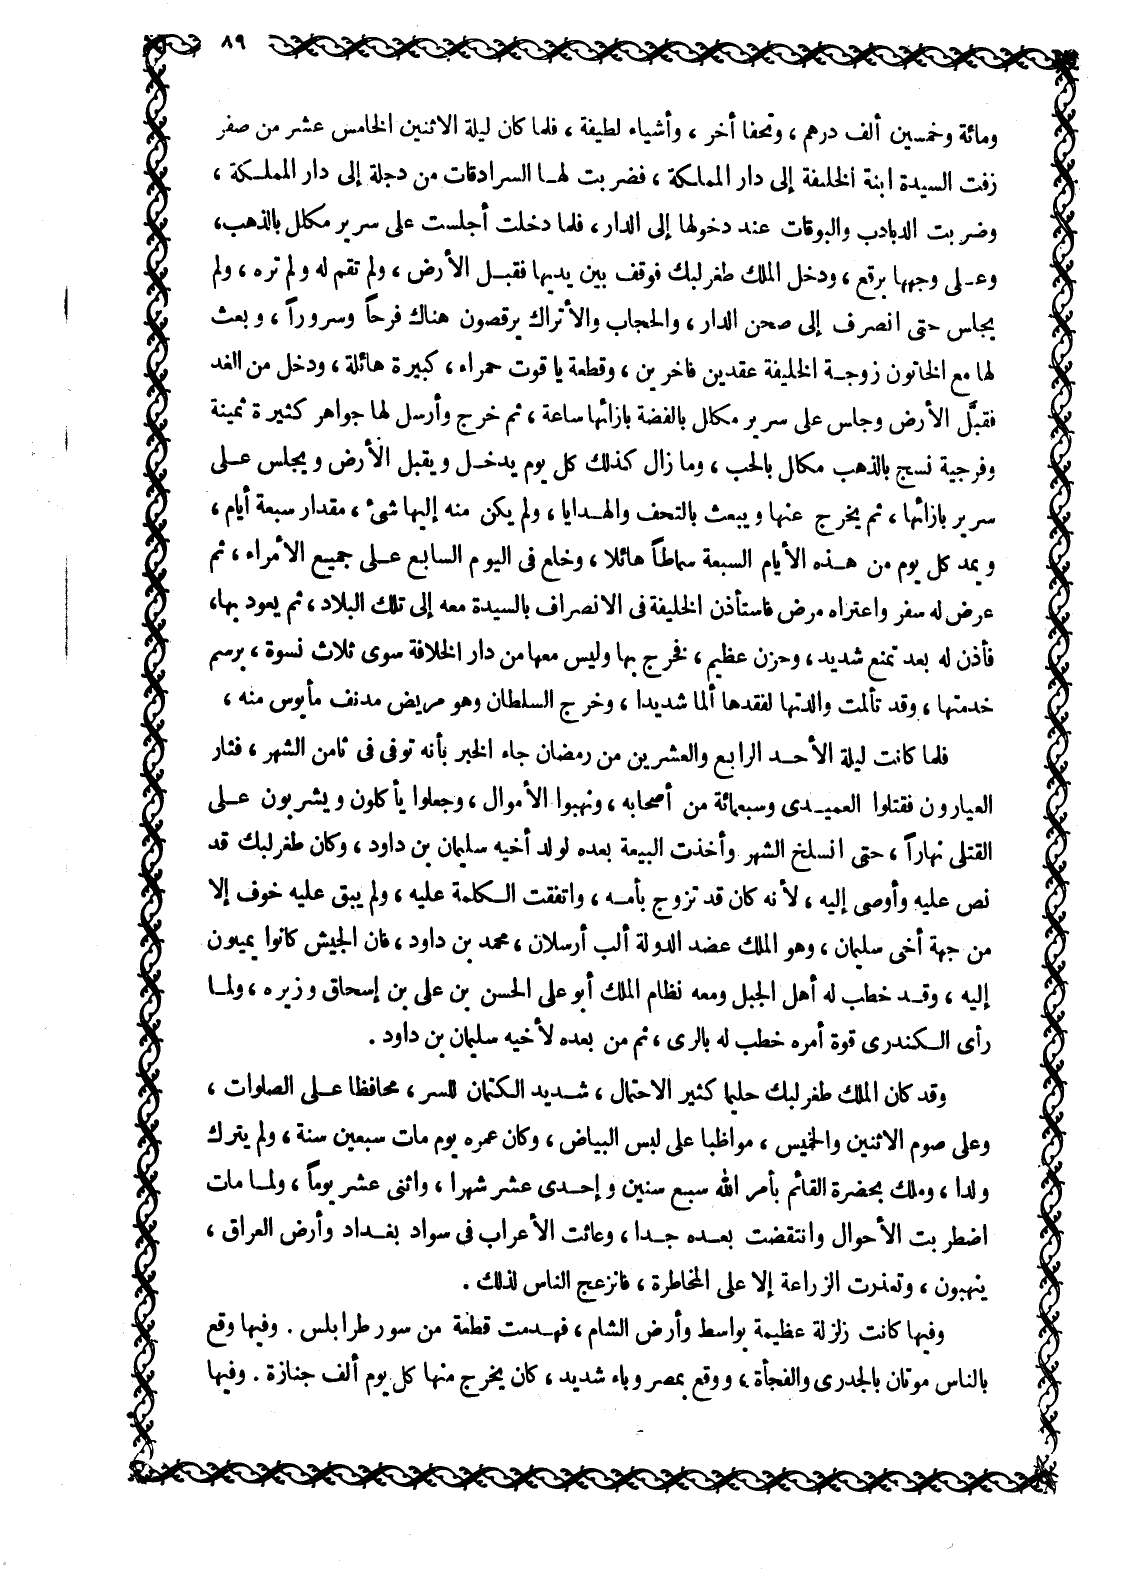 ٨٩
ومائة وخمسين ألف درهم ، وتحفا أخر ، وأشياء لطيفة ، فلما كان ليلة الاثنين الخامس عشر من صفر
زفت السيدة ابنة الخليفة إلى دار المملكة ، فضربت لها السرادقات من دجلة إلى دار المملكة ،
وضربت الدبادب والبوقات عند دخولها إلى الدار ، فلما دخلت أجلست على سرير مكلل بالذهب ،
وعلى وجهها برقع ، ودخل الملك طغرلبك فوقف بين يديها فقبل الأرض ، ولم تقم له ولم تره ، ولم
يجلس حتى انصرف إلى صحن الدار ، والحجاب والأتراك يرقصون هناك فرحاً وسروراً ، وبعث
لها مع الخاتون زوجة الخليفة عقدين فاخرين ، وقطعة ياقوت حمراء ، كبيرة هائلة ، ودخل من الغد
فقبَّل الأرض وجلس على سرير مكلل بالفضة بازائها ساعة ، ثم خرج وأرسل لها جواهر كثيرة ثمينة
وفرجية نسج بالذهب مكلل بالحب ، وما زال كذلك كل يوم يدخل ويقبل الأرض ويجلس على
سرير بازائها ، ثم يخرج عنها ويبعث بالتحف والهدايا ، ولم يكن منه إليها شئ ، مقدار سبعة أيام ،
ويمد كل يوم من هذه الأيام السبعة سماطاً هائلا ، وخلع فى اليوم السابع على جميع الأمراء ، ثم
عرض له سفر واعتراه مرض فاستأذن الخليفة فى الانصراف بالسيدة معه إلى تلك البلاد ، ثم يعود بها ،
فأذن له بعد تمنع شديد ، وحزن عظيم ، فخرج بها وليس معها من دار الخلافة سوى ثلاث نسوة ، برسم
خدمتها ، وقد تألمت والدتها لفقدها ألما شديدا ، وخرج السلطان وهو مريض مدنف مأيوس منه ،
فلما كانت ليلة الأحد الرابع والعشرين من رمضان جاء الخبر بأنه توفى فى ثامن الشهر ، فثار
العيارون فقتلوا العميدى وسبعمائة من أصحابه ، ونهبوا الأموال ، وجعلوا يأكلون ويشربون على
القتلى نهاراً ، حتى انسلخ الشهر وأخذت البيعة بعده لولد أخيه سليمان بن داود ، وكان طغرلبك قد
نص عليه وأوصى إليه ، لأنه كان قد تزوج بأمه ، واتفقت الكلمة عليه ، ولم يبق عليه خوف إلا
من جهة أخى سليمان ، وهو الملك عضد الدولة ألب أرسلان ، محمد بن داود ، فان الجيش كانوا يميلون
إليه ، وقد خطب له أهل الجبل ومعه نظام الملك أبو على الحسن بن على بن إسحاق وزيره ، ولما
رأى الكندرى قوة أمره خطب له بالرى ، ثم من بعده لأخيه سليمان بن داود .
وقد كان الملك طغرلبك حليما كثير الاحتمال ، شديد الكتمان للسر ، محافظا على الصلوات ،
وعلى صوم الاثنين والخميس ، مواظبا على لبس البياض ، وكان عمره يوم مات سبعين سنة ، ولم يترك
ولدا ، وملك بحضرة القائم بأمر الله سبع سنين وإحدى عشر شهرا ، واثنى عشر يوماً ، ولما مات
اضطربت الأحوال وانتقضت بعده جدا ، وعاثت الأعراب فى سواد بغداد وأرض العراق ،
ينهبون ، وتعذرت الزراعة إلا على المخاطرة ، فانزعج الناس لذلك .
وفيها كانت زلزلة عظيمة بواسط وأرض الشام ، فهدمت قطعة من سور طرابلس . وفيها وقع
بالناس موتان بالجدرى والفجأة ، ووقع بمصر وباء شديد ، كان يخرج منها كل يوم ألف جنازة . وفيها